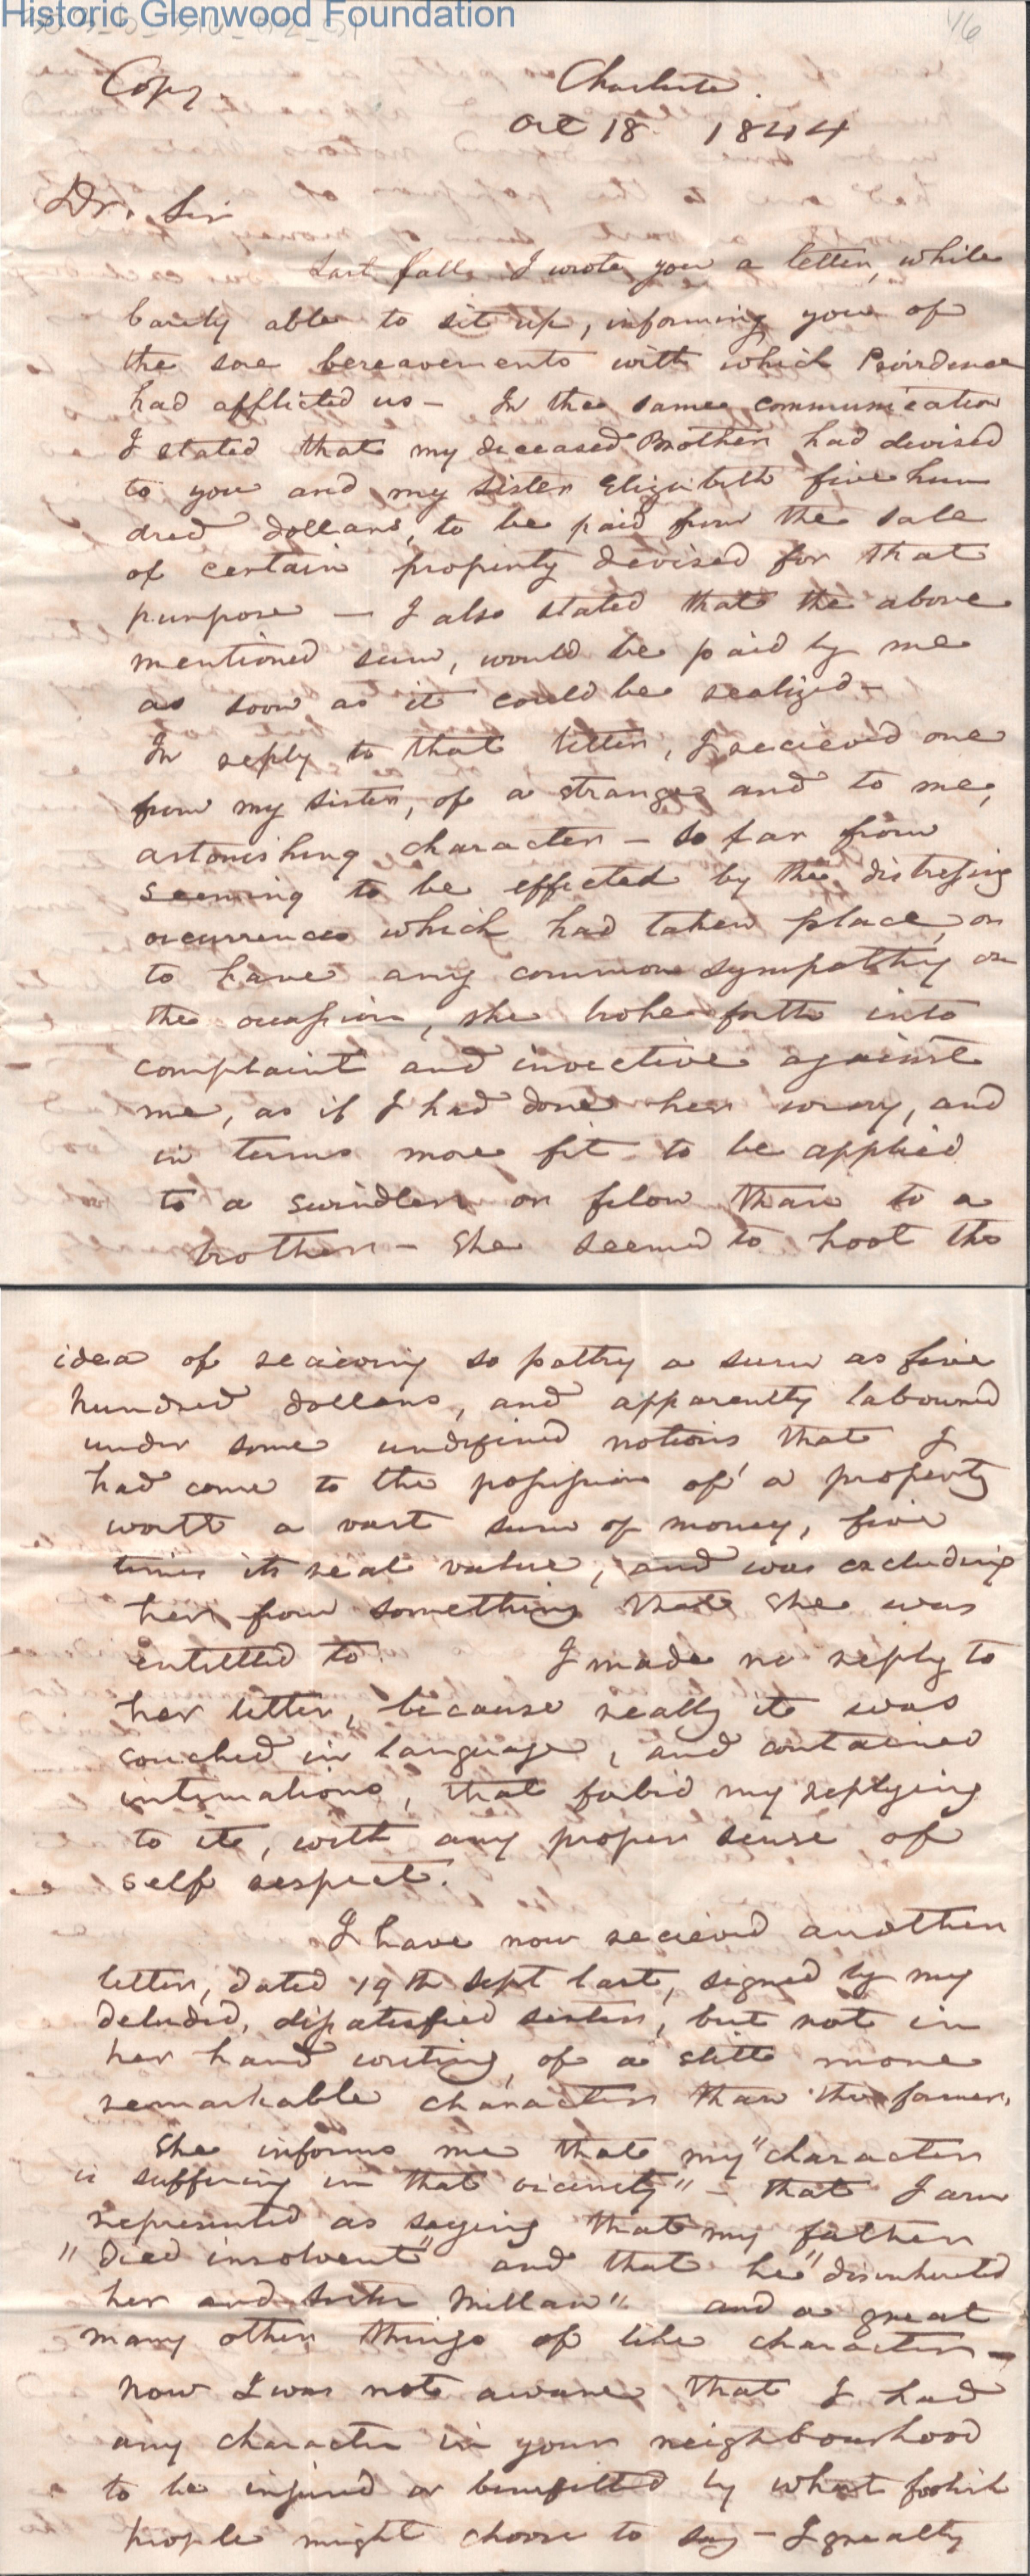 Historic Glenwood Foundation
46
Copy.
Charlester.
Oct 18 1844
Dr. Sir
Last fall I wrote you a letter, while
barely able to sit up, informing you of
the sore bereavements with which Providence
had afflicted us — In the same communication
I stated that my deceased Mother had devised
to you and my sister Elizabeth five hun
dred dollars, to be paid from the sale
of certain property devised for that
purpose — I also stated that the above
mentioned sum, would be paid by me
as soon as it could be realized —
In reply to that letter, I recieved one
from my sister, of a strange and to me,
astonishing character — so far from
seeming to be effected by the distressing
occurrences which had taken place, or
to have any common sympathy on
the occassion, she broke forth into
complaint and invective against
me, as if I had done her wrong, and
in terms more fit to be applied
to a swindler or felon than to a
brother — She seemed to hoot the
idea of recieving so paltry a sum as five
hundred dollars, and apparently laboured
under some undefined notions that I
had come to the possession of a property
worth a vast sum of money, five
times its real value, and was excluding
her from something that she was
entitled to. I made no reply to
her letter, because really it was
couched in language, and contained
intimations, that forbid my replying
to it, with any proper sense of
self respect.
I have now recieved another
letter, dated 19th Sept last, signed by my
deluded, dissatisfied sister, but not in
her hand writing, of a still more
remarkable character than the former.
She informs me that my "character
is suffering in that vicinity" — that I am
represented as saying that my father
"died insolvent" and that he "disinherited
her and sister Millan" and a great
many other things of like character —
Now I was not aware that I had
any character in your neighbourhood
to be injured or benefitted by what foolish
people might choose to say — I greatly